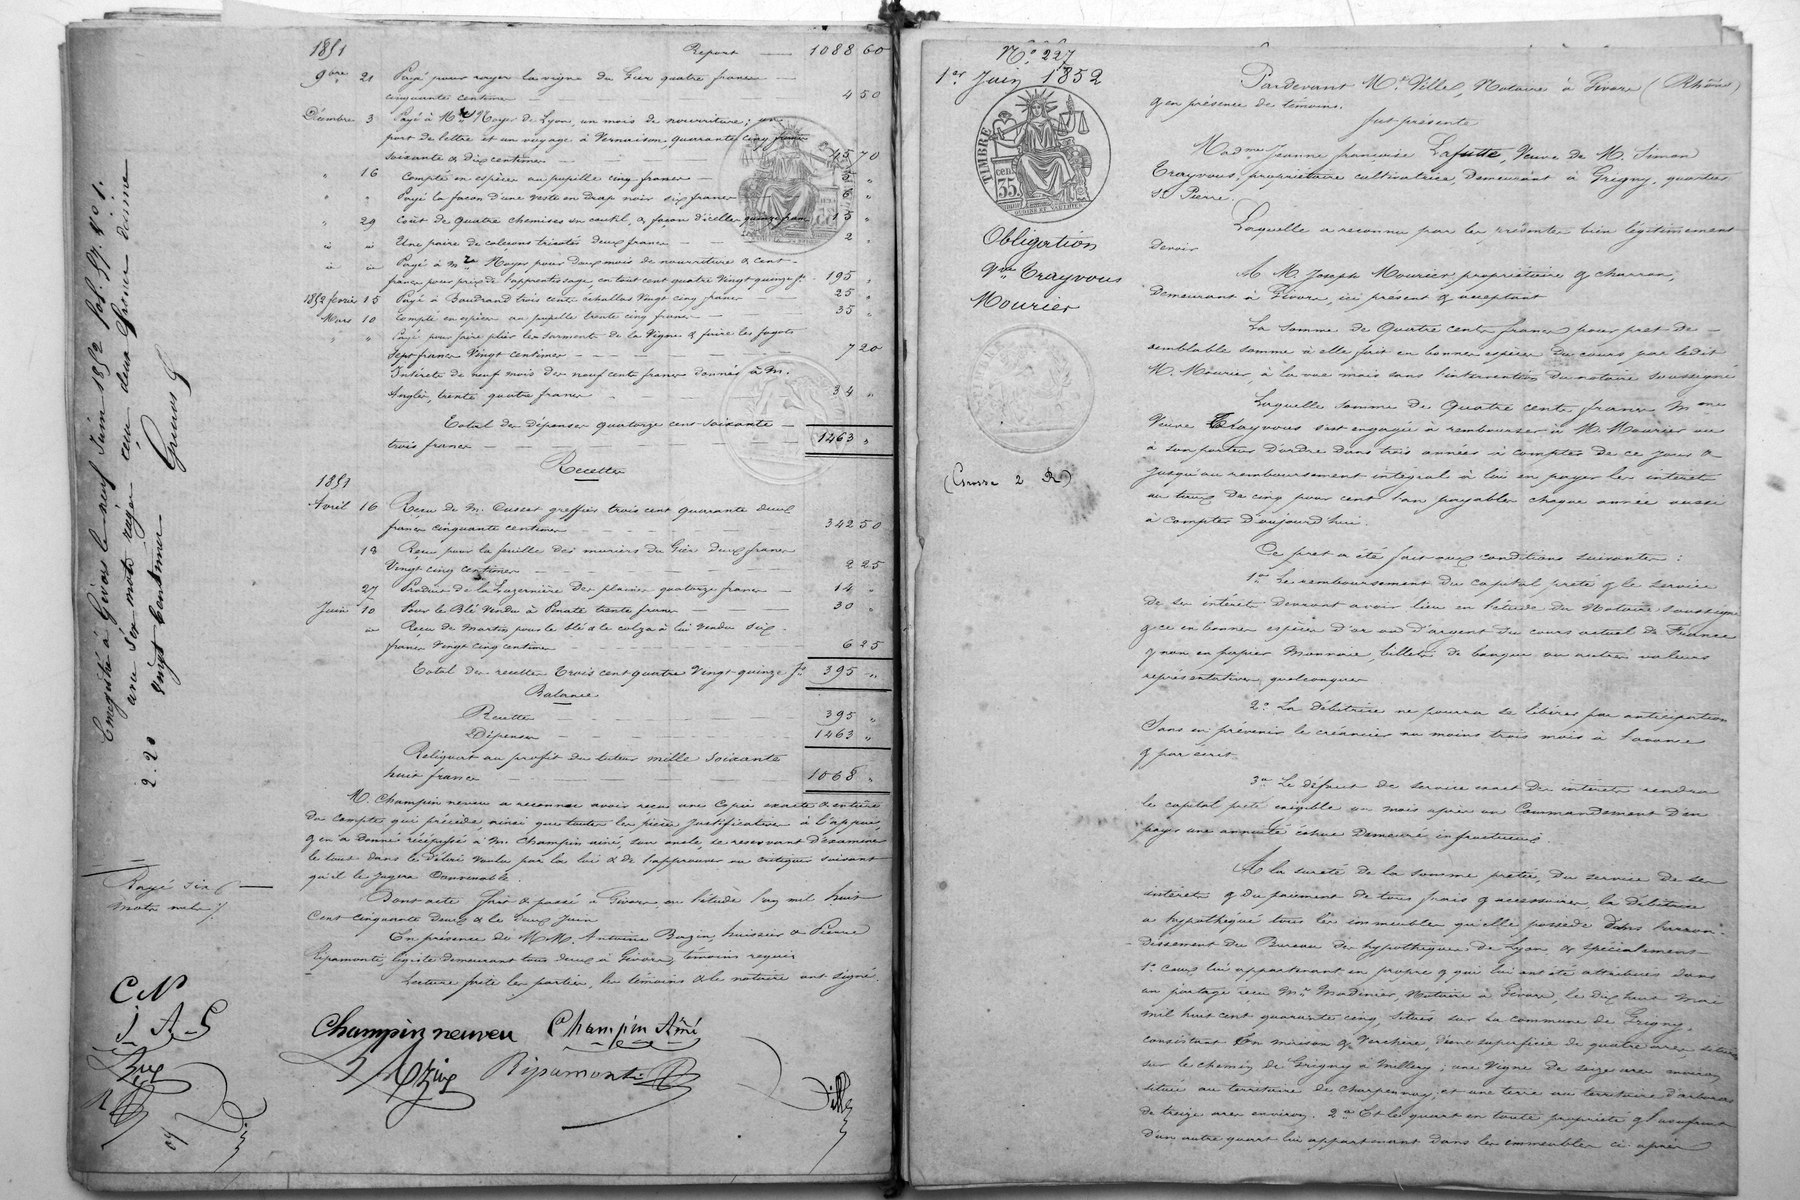 1851 Report 1088 60
9bre 21 Payé pour royer la vigne du Gier quatre francs
cinquante centimes 4 50
Décembre 3 Payé à Mr Noyer de Lyon, un mois de nourriture; un
port de lettre et un voyage à Vernaison, quarante cinq francs
soixante & dix centimes 45 70
" 16 Compté en espèces au pupille cinq francs 5 "
" " Payé la façon d'une veste en drap noir six francs 6 "
" 29 Coût de quatre chemises en coutil, & façon d'icelles quinze francs 15 "
" " Une paire de caleçons tricotés deux francs 2 "
" " Payé à Mr Noyer pour deux mois de nourriture & cent
francs pour prix de l'apprentissage, en tout cent quatre vingt quinze f. 195 "
1852 fevrier 15 Payé à Baudrand trois cents échallas vingt cinq francs 25 "
Mars 10 Compté en espèces au pupille trente cinq francs 35 "
" " Payé pour faire plier les sarments de la Vigne & faire les fagots
sept francs vingt centimes 7 20
Intérêts de neuf mois des neuf cents francs donnés à M.
Anglès, trente quatre francs 34 "
Total des Dépenses quatorze cent soixante
trois francs 1463 "
Recettes
1851
Avril 16 Reçu de M. Cusset greffier trois cent quarante deux
francs cinquante centimes 342 50
18 Reçu pour la feuille des muriers du Gier deux francs
Vingt cinq centimes 2 25
27 Produit de la Luzernière des plaines quatorze francs 14 "
Juin 10 Pour le Blé vendu à Penate trente francs 30 "
" Reçu de Martin pour le blé & le colza à lui vendu six
francs vingt cinq centimes 6 25
Total des recettes Trois cent quatre Vingt-quinze fs 395 "
Balance
Recettes 395 "
Dépenses 1463 "
Reliquat au profit du tuteur mille soixante
huit francs 1068 "
M. Champin neveu a reconnu avoir reçu une Copie exacte & entière
du compte qui précède ainsi que toutes les pièces justificatives à l'appui,
& en a donné récépissé à M. Champin ainé, son oncle, se reservant d'examiner
le tout dans le délai voulu par la loi & de l'approuver ou critiquer suivant
qu'il le jugera convenable.
Dont acte fait & passé à Givors, en l'étude l'an mil huit
Cent cinquante deux & le deux Juin
En présence de M.M. Antoine Bazin, huissier & Pierre
Ripamonti, légiste demeurant tous deux à Givors, témoins requis
Lecture faite les parties, les témoins & le notaire ont signé.
Champin neuveu Champin Ainé
Bazin Ripamonti Ville
Enregistré à Givors le neuf Juin 1852 fol. 57. Vo
reçu deux francs decime
vingt centimes
2.20
Rayé six
mots nuls
C N
Nº 227
1er Juin 1852
TIMBRE
35
Obligation
Vve Trayvous
Mourier
(Grosse 2 R)
Pardevant Me Ville, Notaire à Givors (Rhône)
& en présence de témoins.
fut présente
Madme Jeanne françoise Lafutte, Veuve de M. Simon
Trayvous, propriétaire cultivatrice, demeurant à Grigny, quartier
St Pierre.
Laquelle a reconnu par les présentes bien légitimement
devoir
A M. Joseph Mourier, propriétaire & charron,
demeurant à Givors, ici présent & acceptant
La somme de Quatre cents francs pour pret de
semblable somme à elle fait en bonnes espèces du cours, par ledit
M. Mourier, à la vue mais sans l'intervention du notaire soussigné
Laquelle somme de Quatre cents francs Mme
Veuve Trayvous s'est engagée à rembourser à M. Mourier ou
à son porteur d'ordre dans trois années à compter de ce jour &
jusqu'au remboursement intégral à lui en payer les intérêts
au taux de cinq pour cent l'an payables chaque année aussi
à compter d'aujourd'hui.
Ce pret a été fait aux conditions suivantes:
1º Le remboursement du capital prêté & le service
de ses intérêts devront avoir lieu en l'étude du Notaire soussigné
& ce en bonnes espèces d'or ou d'argent du cours actuel de France
& non en papier monnaie, billets de banque ou autres valeurs
représentatives quelconques
2º La débitrice ne pourra se libérer par anticipation
sans en prévenir le créancier au moins trois mois à l'avance
& par écrit.
3º Le défaut de service exact des intérêts rendra
le capital prêté exigible un mois après un Commandement d'en
payer une annuité échue demeuré infructueux.
A la sureté de la somme prêtée, du service de ses
intérêts & du paiement de tous frais & accessoires, la débitrice
a hypothéqué tous les immeubles qu'elle possède dans l'arron-
dissement du Bureau des hypothèques de Lyon & spécialement
1º Ceux lui appartenant en propre & qui lui ont été attribués dans
un partage reçu Me Madinier, Notaire à Givors, le dix huit Mai
mil huit cent quarante cinq, situés sur la commune de Grigny,
consistant En maison & Verchère, d'une superficie de quatre ares situés
sur le chemin de Grigny à Millery; une Vigne de seize ares environ
située au territoire de Charpenay; et une terre au territoire d'arboras
de treize ares environ. 2º Et le quart en toute propriété & l'usufruit
d'un autre quart lui appartenant dans les immeubles ci-après